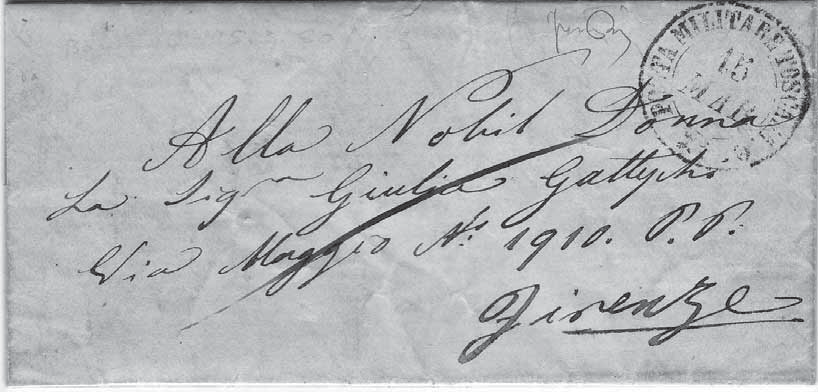 POSTA MILITARE TOSCANA
15
MAR
Alla Nobil Donna
La Sigra Giulia Gatteschi
Via Maggio No. 1910. P. P.
Firenze